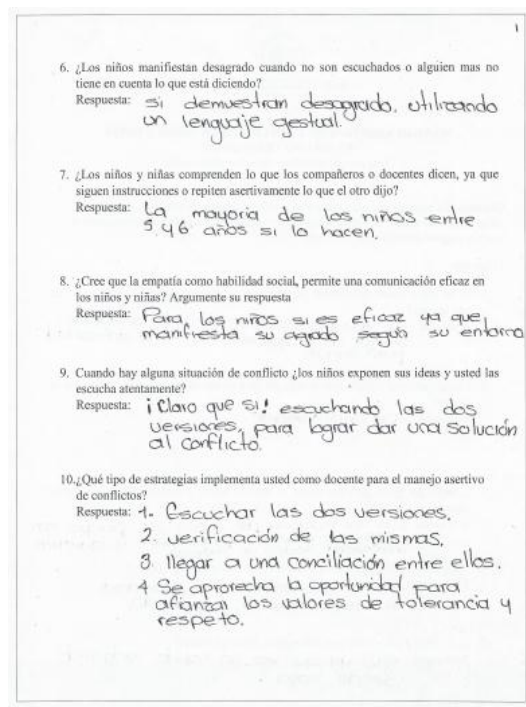 1
6. ¿Los niños manifiestan desagrado cuando no son escuchados o alguien mas no
tiene en cuenta lo que está diciendo?
Respuesta: si demuestran desagrado, utilizando
un lenguaje gestual.
7. ¿Los niños y niñas comprenden lo que los compañeros o docentes dicen, ya que
siguen instrucciones o repiten asertivamente lo que el otro dijo?
Respuesta: La mayoria de los niños entre
5 y 6 años si lo hacen.
8. ¿Cree que la empatía como habilidad social, permite una comunicación eficaz en
los niños y niñas? Argumente su respuesta
Respuesta: Para los niños si es eficaz ya que
manifiesta su agrado según su entorno
9. Cuando hay alguna situación de conflicto ¿los niños exponen sus ideas y usted las
escucha atentamente?
Respuesta: ¡Claro que si! escuchando las dos
versiones, para lograr dar una solución
al conflicto.
10.¿Qué tipo de estrategias implementa usted como docente para el manejo asertivo
de conflictos?
Respuesta: 1. Escuchar las dos versiones.
2. verificación de las mismas.
3. llegar a una conciliación entre ellos.
4 Se aprovecha la oportunidad para
afianzar los valores de tolerancia y
respeto.